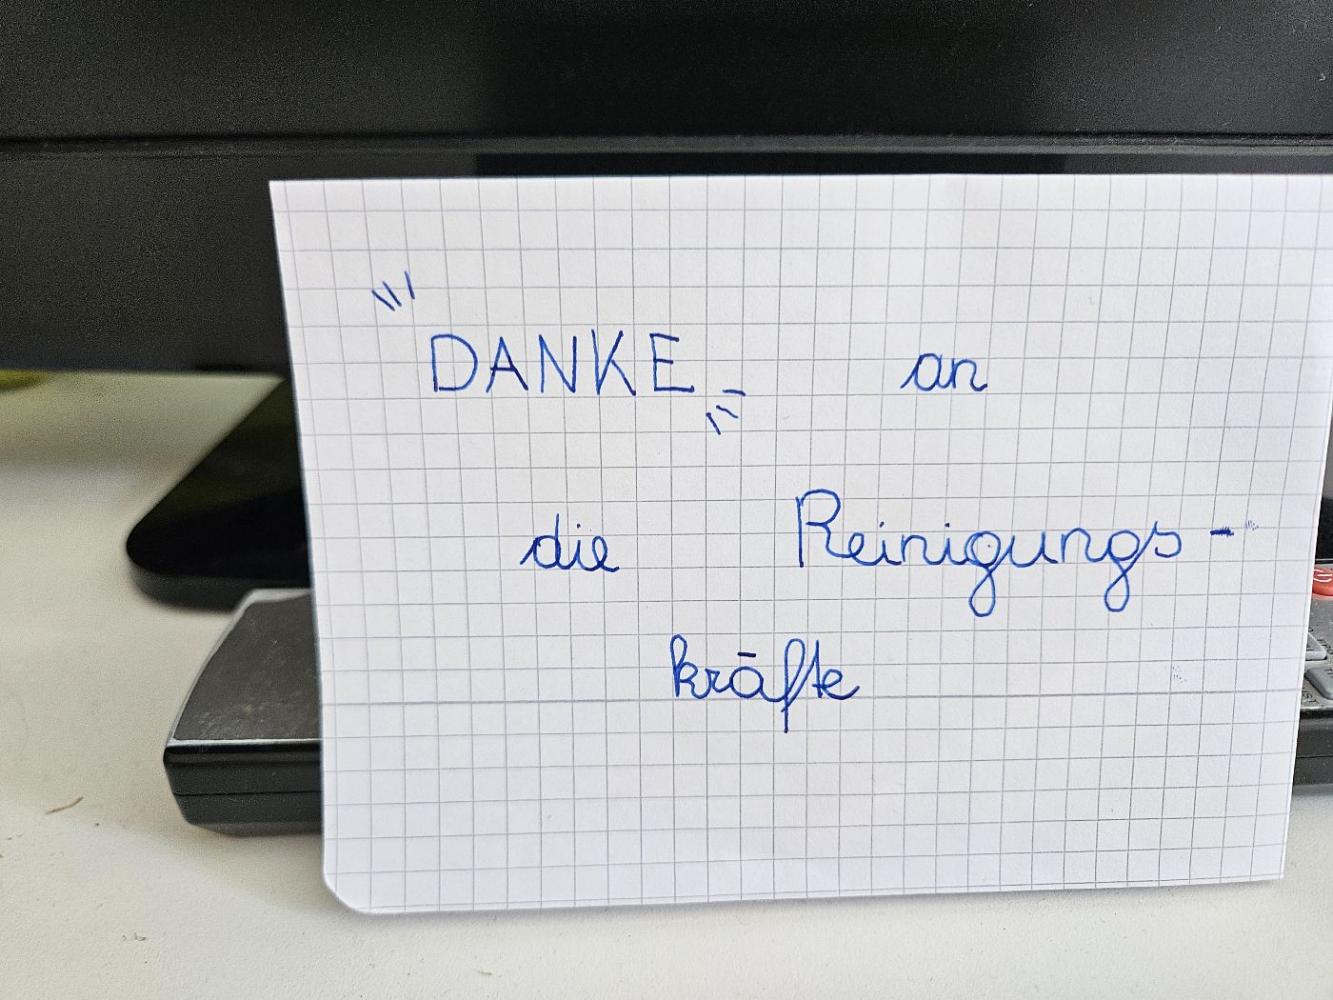 DANKE an
die Reinigungs-
kräfte